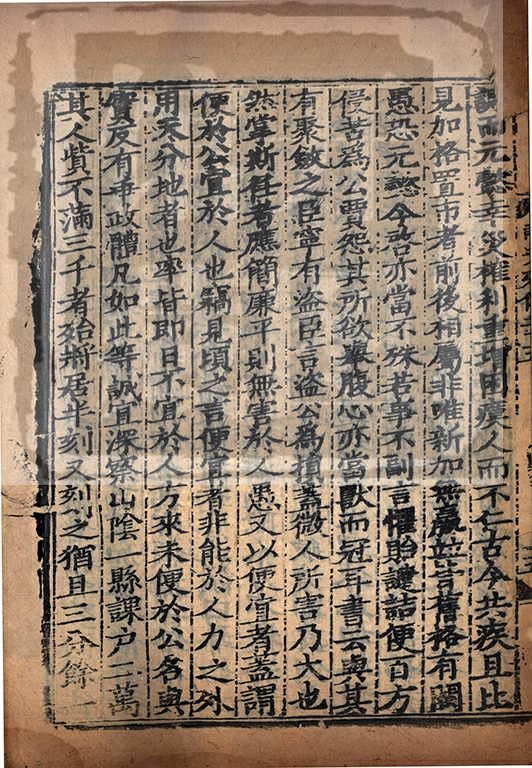 而元懿幸災權利重增困瘼人而不仁古今共疾且比
見加格置市者前後相屬非唯新加無贏並皆舊格有闕
愚恐元懿今啓亦當不殊若事不副言懼貽譴詰便百方
侵苦爲公賈怨其所欲舉腹心亦當獸而冠耳書云與其
有聚斂之臣寧有盜臣言盜公爲損蓋微人所害乃大也
然掌斯任者應簡廉平則無害於人愚又以便宜者蓋謂
便於公宜於人也竊見頃之言便宜者非能於人力之外
用天分地者也率皆即日不宜於人方來未便於公名與
實反有乖政體凡如此等誠宜深察山陰一縣課戶二萬
其人貲不滿三千者殆將居半刻又刻之猶且三分餘一